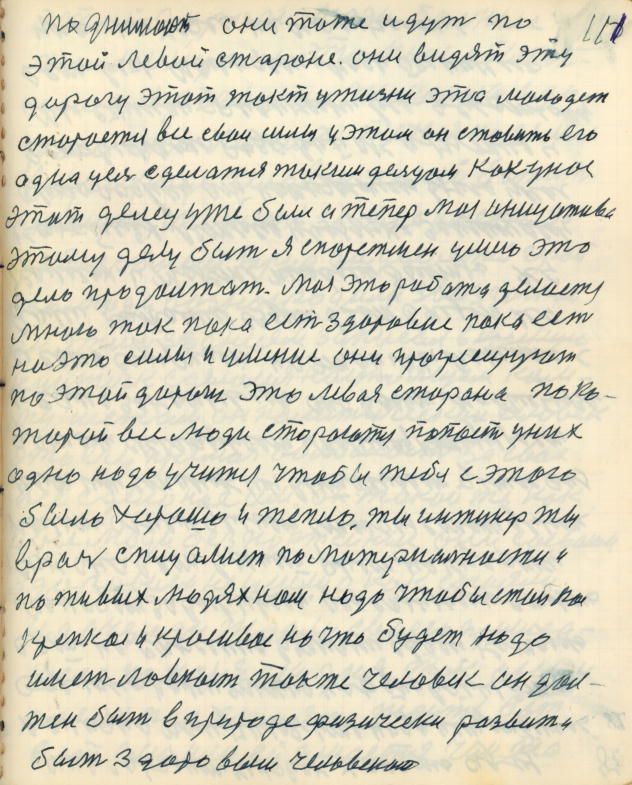 поднимают они тоже идут по 117
этой левой староне. они видят эту
дорогу этот токт ужизни этоа молодет
старается все свои силы у этом он ставить его
одна цель сделатся таким делцом как уног
этот делец уже были и тепер моя инициатива
этому делу быт я спортсмен умею это
дело продолжат. Моя это работа делается
много ток пока ест здоровие пока ест
на это силы и умение они прогресируют
по этой дороги это левая старона по ко-
торой все люди стораются попаст уних
одно надо учится чтобы тебя с этого
было хорошо и тепло, ты интжнер ты
врач специалист по материалности и
по живых людях нам надо чтобы
крепкое и красивое на что будет надо
имет ловкост также человек он дол-
жен быт в природе физически развит и
быт здоровым человеком